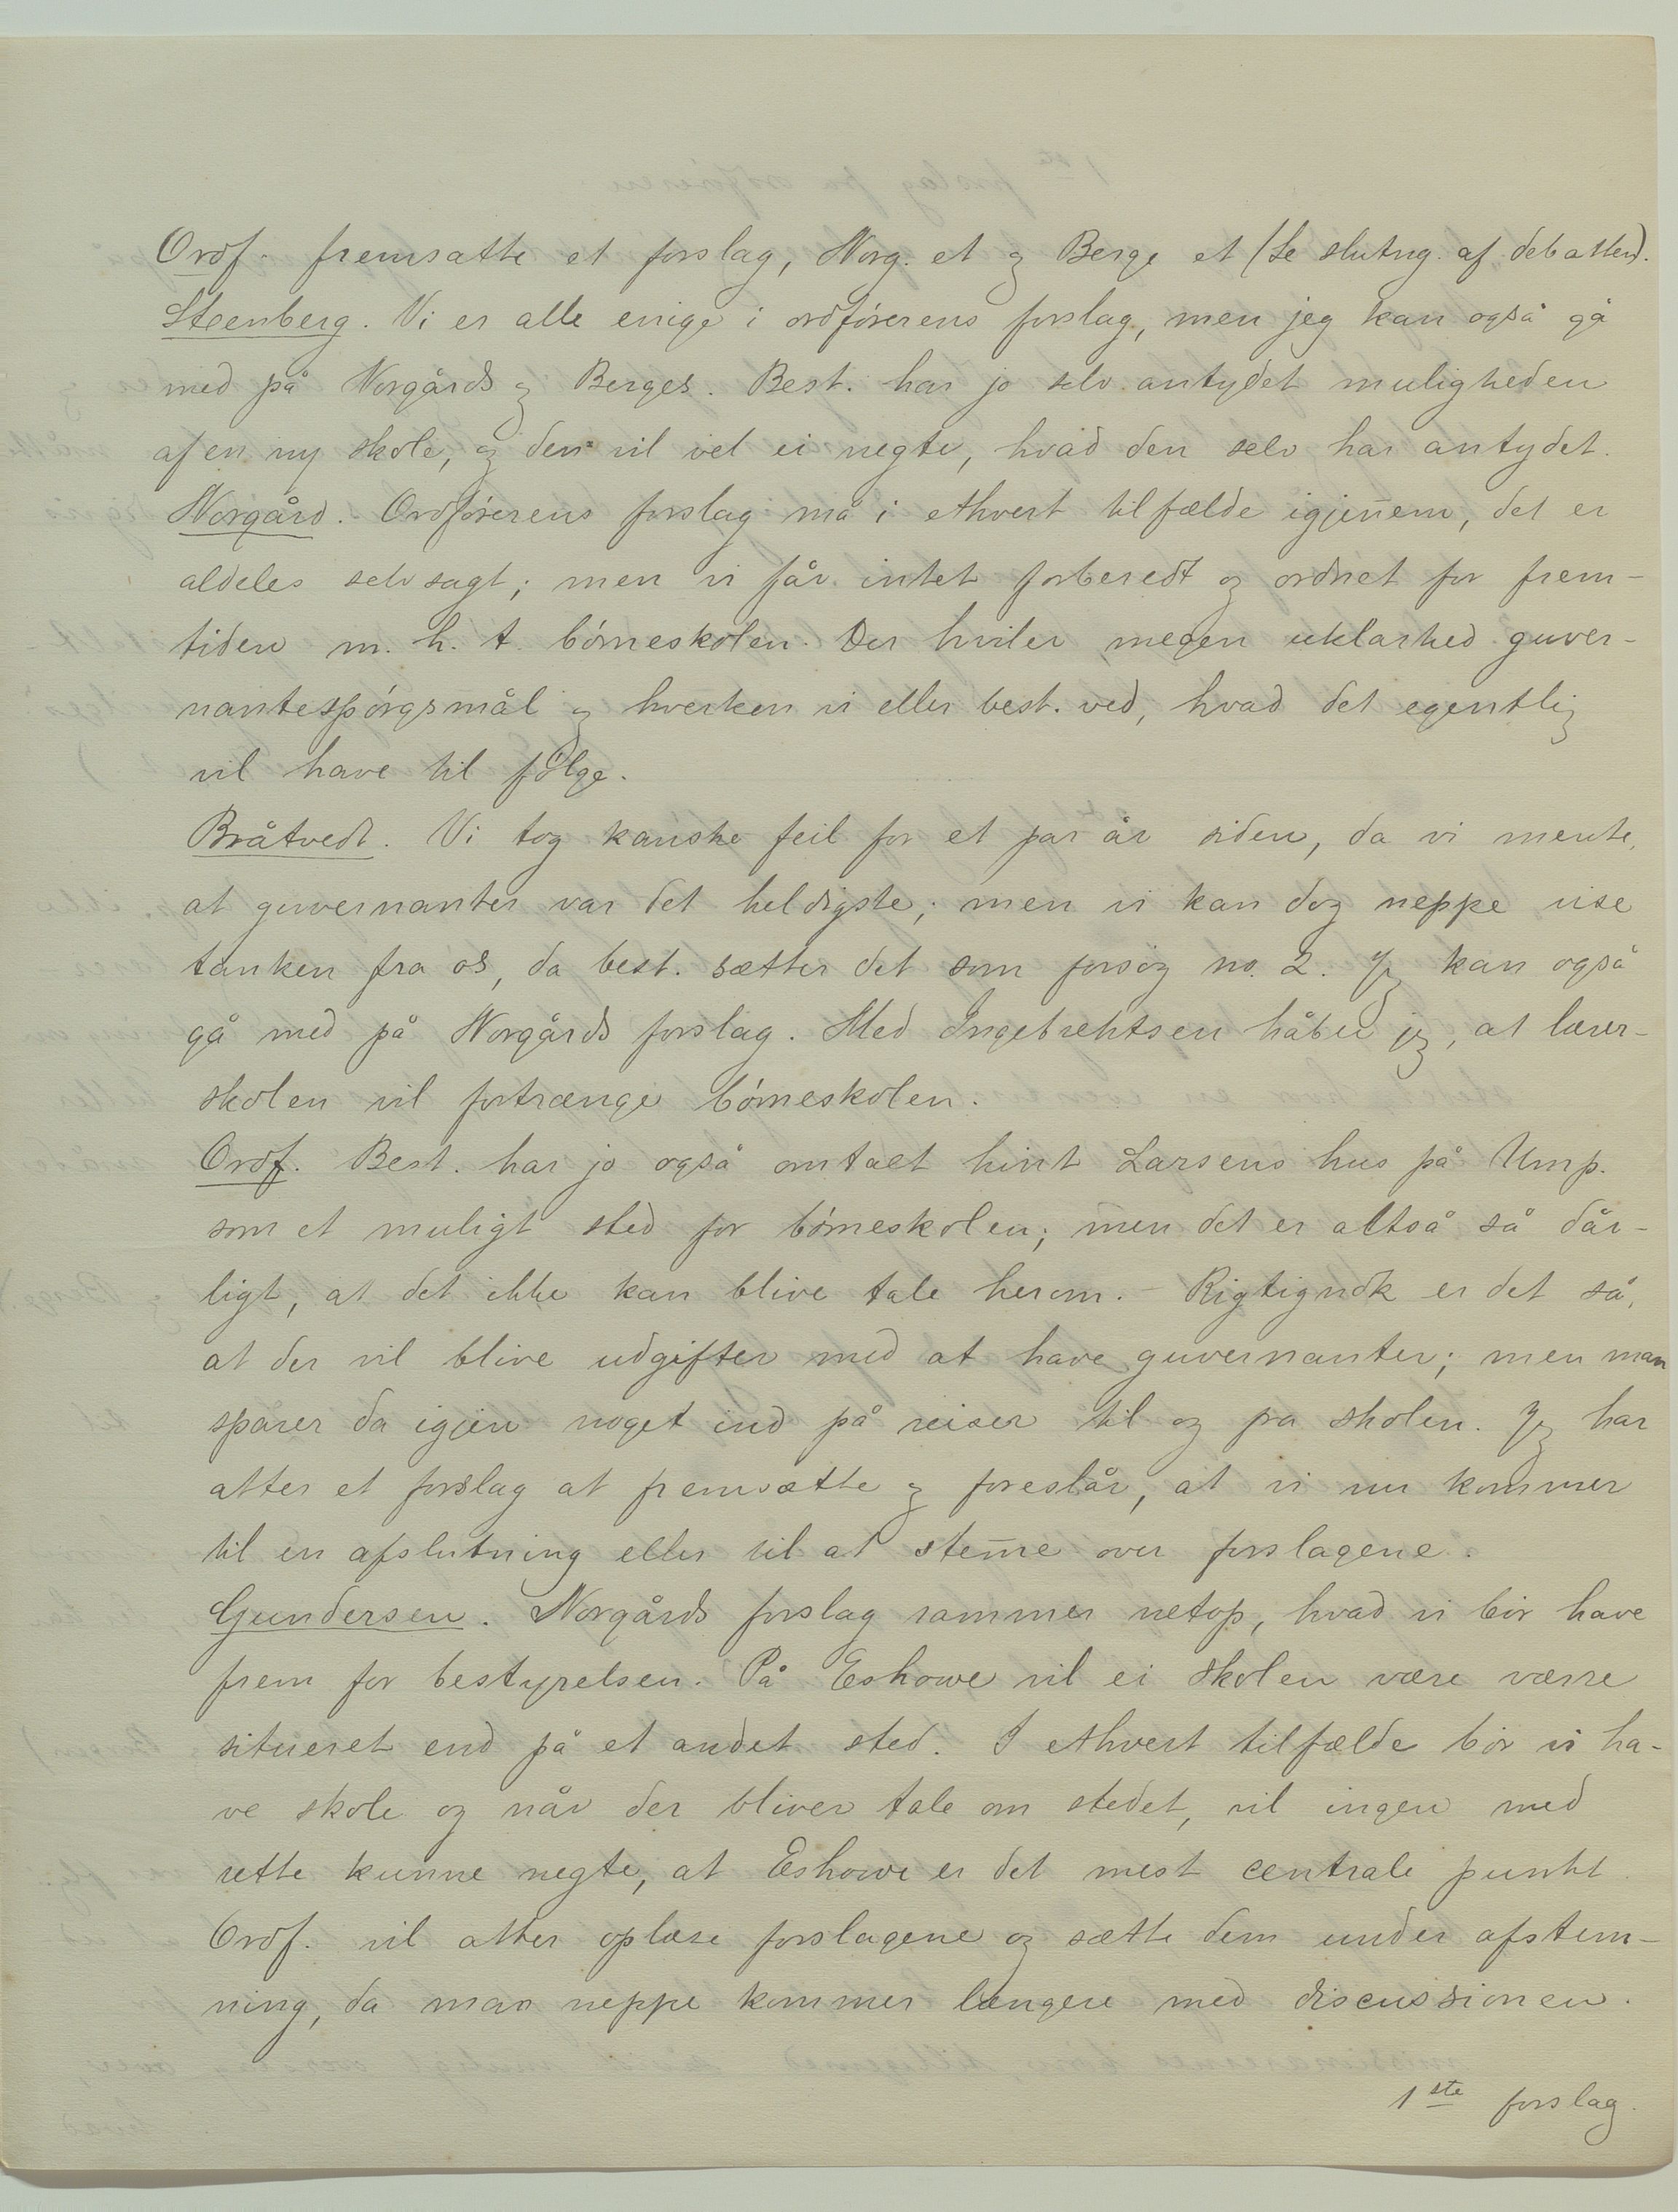 Ordf. fremsatte et forslag, Norg. et og Berge et (Se slutng. af debatten).
Steenberg. Vi er alle enige i ordførerens forslag, men jeg kan også gå
med på Norgårds og Berges. Best. har jo selv antydet muligheden
af en ny skole, og den vil vel ei negte, hvad den selv har antydet.
Norgård. Ordførerens forslag må i ethvert tilfælde igjen̄em, det er
aldeles selvsagt; men vi får intet forberedt og ordnet for frem-
tiden m. h. t. børneskolen. Der hviler megen uklarhed guver-
nantespørgsmål og hverken vi eller best. ved, hvad det egentlig
vil have til følge.
Bråtvedt. Vi tog kanske feil for et par år siden, da vi mente,
at guvernanter var det heldigste; men vi kan dog neppe vise
tanken fra os, da best. sætter det som forsøg no. 2. Jeg kan også
gå med på Norgårds forslag. Med Ingebrehtsen håber jeg, at lærer-
skolen vil fortrænge børneskolen.
Ordf. Best. har jo også omtalt hint Larsens hus på Ump.
som et muligt sted for børneskolen; men det er altså så dår-
ligt, at det ikke kan blive tale herom. Rigtignok er det så,
at der vil blive udgifter med at have guvernanter; men man
sparer da igjen noget ind på reiser til og fra skolen. Jeg har
atter et forslag at fremsætte og foreslår, at vi nu kommer
til en afslutning eller til at stem̄e over forslagene.
Gundersen. Norgårds forslag rammer netop, hvad vi bør have
frem for bestyrelsen. På Eshowe vil ei skolen være værre
situeret end på et andet sted. I ethvert tilfælde bør vi ha-
ve skole og når der bliver tale om stedet, vil ingen med
rette kunne negte, at Eshowe er det mest centrale punkt.
Ordf. vil atter oplæse forslagene og sætte dem under afstem-
ning, da man neppe kommer længere med discussionen.
1ste forslag.